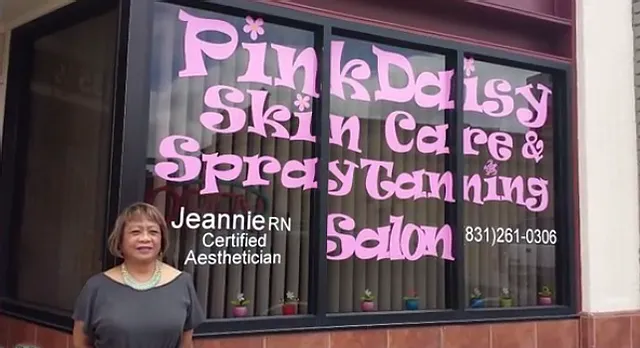 Pink Daisy
Skin Care &
Spray Tanning
Salon
Jeannie RN
Certified
Aesthetician
831)261-0306
OPEN